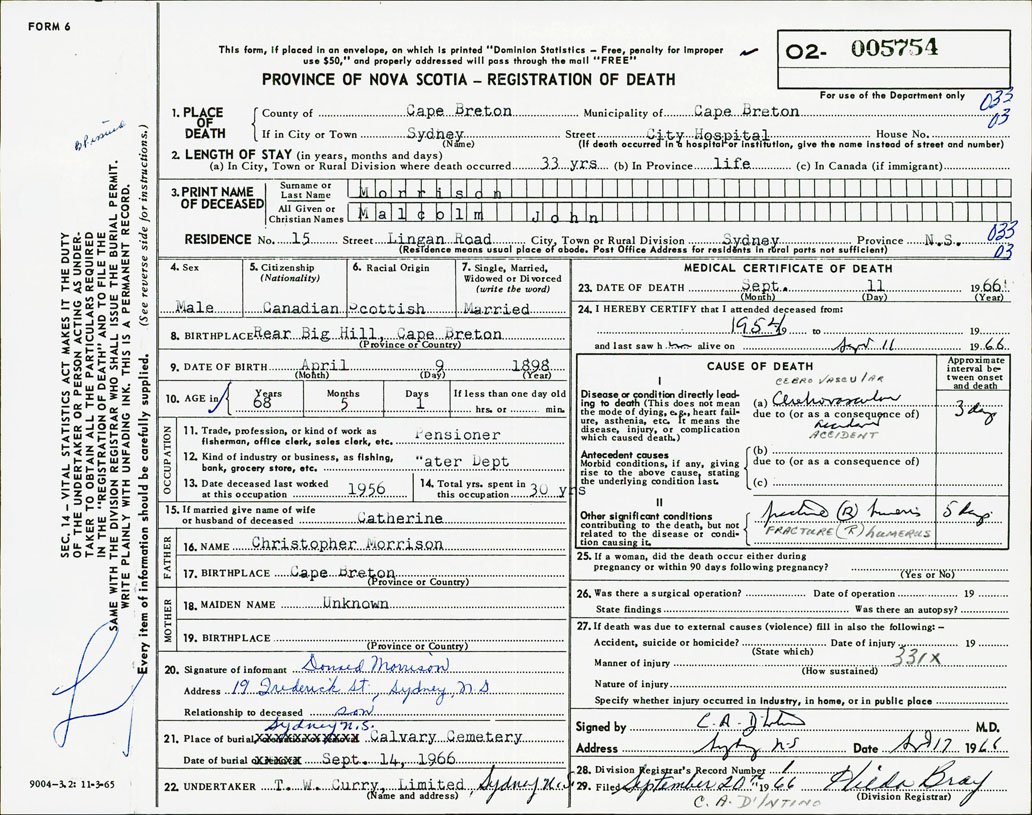 FORM 6
This form, if placed in an envelope, on which is printed "Dominion Statistics — Free, penalty for improper
use $50," and properly addressed will pass through the mail "FREE"
PROVINCE OF NOVA SCOTIA — REGISTRATION OF DEATH
O2- 005754
For use of the Department only
033
03
1. PLACE OF DEATH
County of Cape Breton Municipality of Cape Breton
If in City or Town Sydney Street City Hospital House No.
(Name) (If death occurred in a hospital or institution, give the name instead of street and number)
2. LENGTH OF STAY (in years, months and days)
(a) In City, Town or Rural Division where death occurred 33 yrs (b) In Province life (c) In Canada (if immigrant)
3. PRINT NAME OF DECEASED
Surname or Last Name Morrison
All Given or Christian Names Malcolm John
RESIDENCE No. 15 Street Lingan Road City, Town or Rural Division Sydney Province N.S.
033
03
(Residence means usual place of abode. Post Office Address for residents in rural parts not sufficient)
4. Sex
Male
5. Citizenship
(Nationality)
Canadian
6. Racial Origin
Scottish
7. Single, Married,
Widowed or Divorced
(write the word)
Married
8. BIRTHPLACE Rear Big Hill, Cape Breton
(Province or Country)
9. DATE OF BIRTH April 9 1898
(Month) (Day) (Year)
10. AGE in Years Months Days If less than one day old
68 5 1 hrs. or min.
OCCUPATION
11. Trade, profession, or kind of work as
fisherman, office clerk, sales clerk, etc. Pensioner
12. Kind of industry or business, as fishing,
bank, grocery store, etc. "ater Dept
13. Date deceased last worked
at this occupation 1956
14. Total yrs. spent in
this occupation 30 yrs
15. If married give name of wife
or husband of deceased Catherine
FATHER
16. NAME Christopher Morrison
17. BIRTHPLACE Cape Breton
(Province or Country)
MOTHER
18. MAIDEN NAME Unknown
19. BIRTHPLACE
(Province or Country)
20. Signature of informant Donald Morrison
Address 19 Frederick St., Sydney, N.S
Relationship to deceased son
Sydney N.S.
21. Place of burial XXXXXXXXXXX Calvary Cemetery
Date of burial XXXXX Sept. 14, 1966
22. UNDERTAKER T. W. Curry, Limited, Sydney N.S.
(Name and address)
MEDICAL CERTIFICATE OF DEATH
23. DATE OF DEATH Sept. 11 1966
(Month) (Day) (Year)
24. I HEREBY CERTIFY that I attended deceased from:
1954 19 to 19
and last saw h alive on Sept 11 1966
CAUSE OF DEATH
Approximate
interval be-
tween onset
and death
I
Disease or condition directly lead-
ing to death (This does not mean
the mode of dying, e.g., heart fail-
ure, asthenia, etc. It means the
disease, injury, or complication
which caused death.)
CEBRO VASCULAR
(a) Cerebrovascular 3 day
due to (or as a consequence of)
accident
ACCIDENT
Antecedent causes
Morbid conditions, if any, giving
rise to the above cause, stating
the underlying condition last.
(b)
due to (or as a consequence of)
(c)
II
Other significant conditions
contributing to the death, but not
related to the disease or condi-
tion causing it.
fracture (R) humerus 5 days
FRACTURE (R) HUMERUS
25. If a woman, did the death occur either during
pregnancy or within 90 days following pregnancy?
(Yes or No)
26. Was there a surgical operation? Date of operation 19
State findings Was there an autopsy?
27. If death was due to external causes (violence) fill in also the following: —
Accident, suicide or homicide? Date of injury 19
(State which)
Manner of injury 331X
(How sustained)
Nature of injury
Specify whether injury occurred in Industry, in home, or in public place
Signed by C. A. D'Intino M.D.
Address Sydney N S Date 17 1966
28. Division Registrar's Record Number
29. Filed September 20th 1966 Hilda Bray
(Division Registrar)
C. A. D'INTINO
SEC. 14 — VITAL STATISTICS ACT MAKES IT THE DUTY
OF THE UNDERTAKER OR PERSON ACTING AS UNDER-
TAKER TO OBTAIN ALL THE PARTICULARS REQUIRED
IN THE "REGISTRATION OF DEATH" AND TO FILE THE
SAME WITH THE DIVISION REGISTRAR WHO SHALL ISSUE THE BURIAL PERMIT.
WRITE PLAINLY WITH UNFADING INK. THIS IS A PERMANENT RECORD.
Every item of information should be carefully supplied. (See reverse side for instructions.)
9004—3.2: 11-3-65